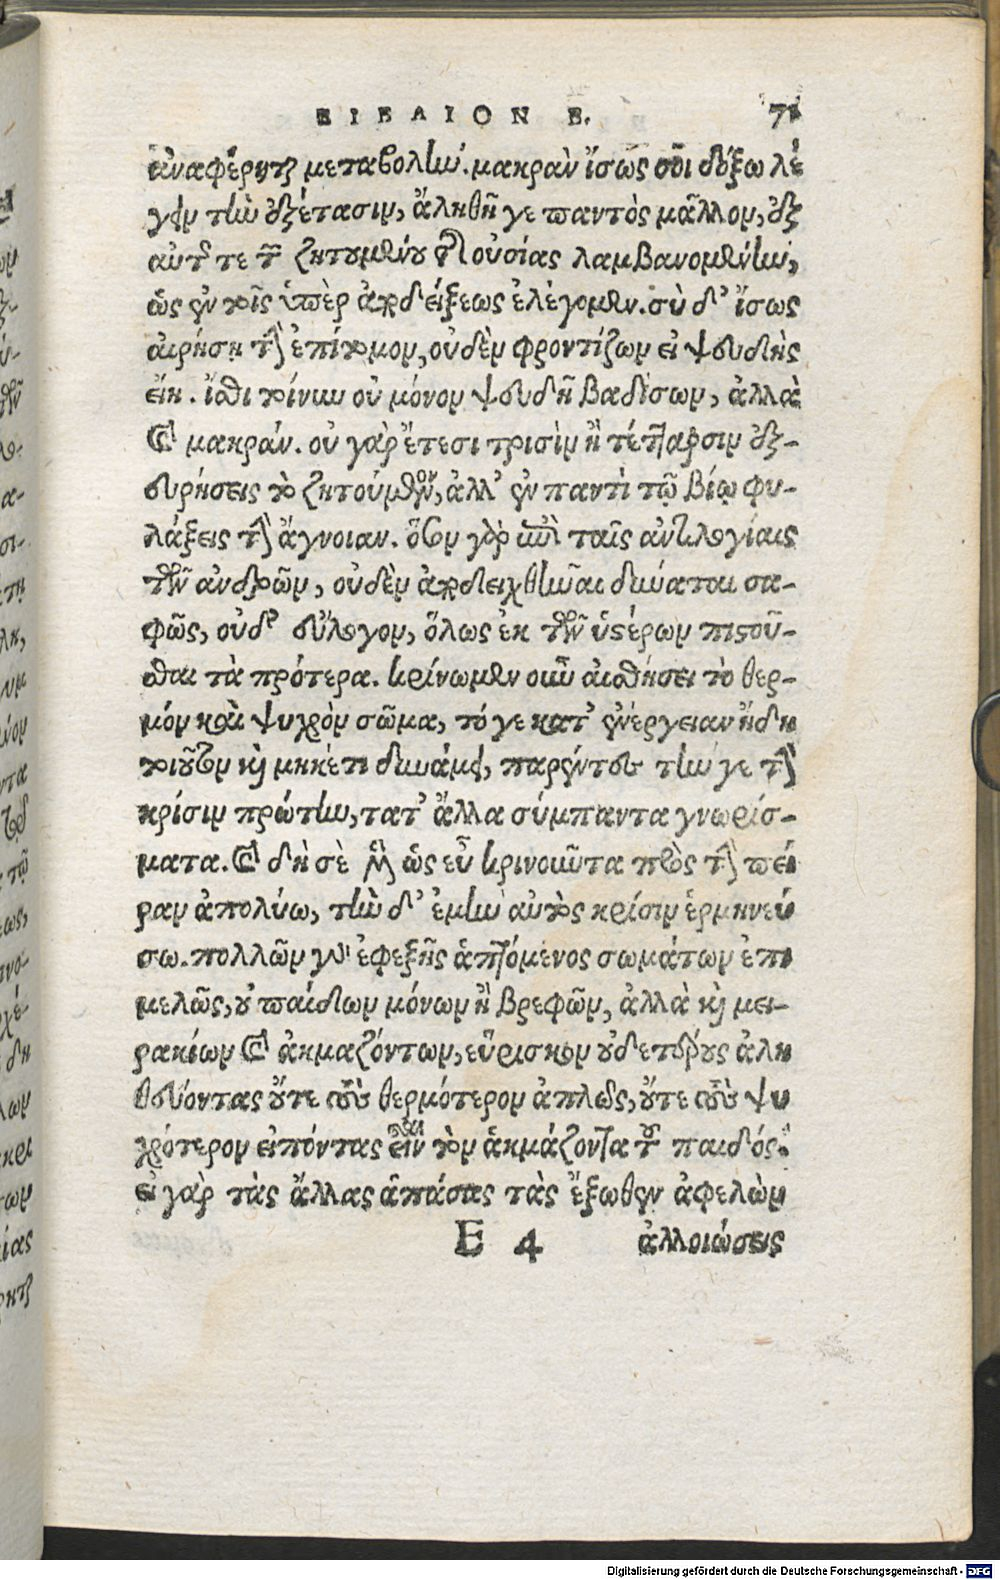 ΒΙΒΛΙΟΝ Β. 71
ἀναφέρηται μεταβολὴν. μακρὰν ἴσως σοι δόξω λέ
γειν τὴν ἐξέτασιν, ἀληθῆ γε παντὸς μᾶλλον, ἐξ
αὐτῆς τε τοῦ ζητουμένου τῆς οὐσίας λαμβανομένην,
ὡς ἐν τοῖς ὑπὲρ ἀποδείξεως ἐλέγομεν. σὺ δ' ἴσως
αἱρήσῃ τὴν ἐπίτομον, οὐδὲν φροντίζων εἰ ψευδὴς
εἴη. ἴσθι τοίνυν οὐ μόνον ψευδῆ βαδίσων, ἀλλὰ
καὶ μακράν. οὐ γὰρ ἔτεσι τρισὶν ἢ τέτταρσιν ἐξ-
ευρήσεις τὸ ζητούμενον, ἀλλ' ἐν παντὶ τῷ βίῳ φυ-
λάξεις τὴν ἄγνοιαν. ὅθεν γὰρ ἐπὶ ταῖς ἀντιλογίαις
τῶν ἀνδρῶν, οὐδὲν ἀποδειχθῆναι δύναται σα-
φῶς, οὐδ' εὔλογον, ὅλως ἐκ τῶν ὑστέρων πιστοῦ-
σθαι τὰ πρότερα. κρίνωμεν οὖν αἰσθήσει τὸ θερ-
μόν καὶ ψυχρὸν σῶμα, τό γε κατ' ἐνέργειαν ἤδη
τοιοῦτον καὶ μηκέτι δυνάμει, παρέντες τήν γε τὴν
κρίσιν πρώτην, τατ' ἄλλα σύμπαντα γνωρίσ-
ματα. καὶ δὴ σὲ μὲν ὡς εὖ κρινοῦντα πρὸς τὴν πεί
ραν ἀπολύω, τὴν δ' ἐμὴν αὐτὸς κρίσιν ἑρμηνεύ
σω. πολλῶν γὰρ ἐφεξῆς ἁπτόμενος σωμάτων ἐπι
μελῶς, οὐ παίδων μόνων ἢ βρεφῶν, ἀλλὰ καὶ μει-
ρακίων καὶ ἀκμαζόντων, εὕρισκον οὐδετέρους ἀλη
θεύοντας οὔτε τοὺς θερμότερον ἁπλῶς, οὔτε τοὺς ψυ
χρότερον εἰπόντας εἶναι τὸν ἀκμάζοντα τοῦ παιδός.
εἰ γὰρ τὰς ἄλλας ἁπάσας τὰς ἔξωθεν ἀφελὼν
E 4 ἀλλοιώσεις
Digitalisierung gefördert durch die Deutsche Forschungsgemeinschaft - DFG